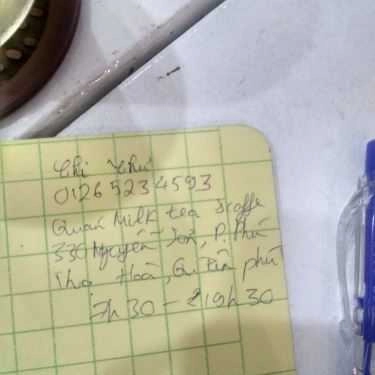 Chị Thư
0126 523 4593
Quán Milk tea &
330 Nguyễn Sơn, P. Phú
Thọ Hoà, Q. Tân phú
7h30 - 19h30